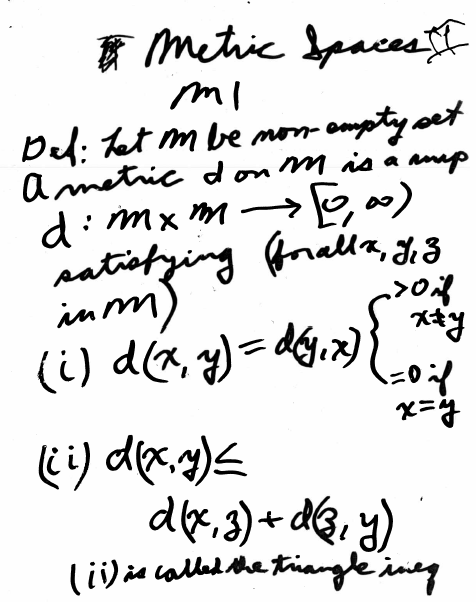 Metric Spaces 1
M1
Def: Let M be non-empty set
A metric d on M is a map
d : M x M → [0, ∞)
satisfying (for all x, y, z
in M)
(i) d(x, y) = d(y, x) { >0 if x≠y
=0 if x=y
(ii) d(x, y) ≤
d(x, z) + d(z, y)
(ii) is called the triangle ineq